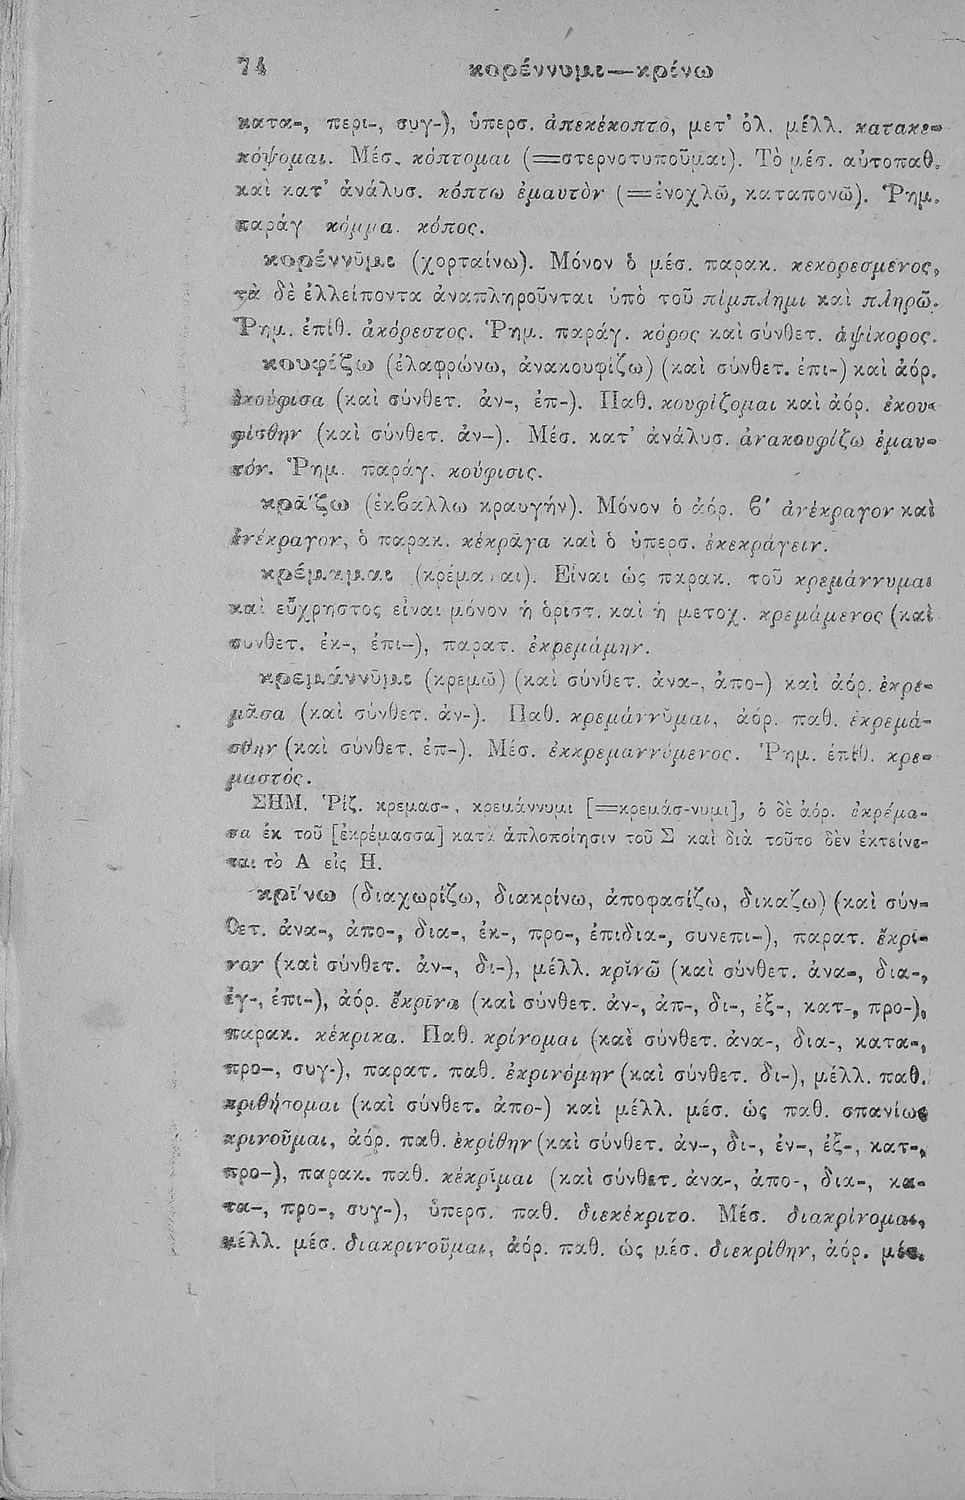 74 κορέννυμι—κρίνω
κατα-, περι-, συγ-), ὑπερσ. ἀπεκέκοπτο, μετ’ ὀλ. μέλλ. κατακε-
κόψομαι. Μέσ. κόπτομαι (=στερνοτυποῦμαι). Τὸ μέσ. αὐτοπαθ.
καὶ κατ’ ἀνάλυσ. κόπτω ἐμαυτὸν (=ἐνοχλῶ, καταπονῶ). Ῥημ.
παράγ κόμμα. κόπος.
κορέννῡμι (χορταίνω). Μόνον ὁ μέσ. παρακ. κεκορεσμένος,
τὰ δὲ ἐλλείποντα ἀναπληροῦνται ὑπὸ τοῦ πίμπλημι καὶ πληρῶ.
Ῥημ. ἐπίθ. ἀκόρεστος. Ῥημ. παράγ. κόρος καὶ σύνθετ. ἁψίκορος.
κουφίζω (ἐλαφρώνω, ἀνακουφίζω) (καὶ σύνθετ. ἐπι-) καὶ ἀόρ.
ἐκούφισα (καὶ σύνθετ. ἀν-, ἐπ-). Παθ. κουφίζομαι καὶ ἀόρ. ἐκου-
φίσθην (καὶ σύνθετ. ἀν-). Μέσ. κατ’ ἀνάλυσ. ἀνακουφίζω ἐμαυ-
τόν. Ῥημ. παράγ. κούφισις.
κρᾱ́ζω (ἐκβάλλω κραυγήν). Μόνον ὁ ἀόρ. β’ ἀνέκραγον καὶ
ἐνέκραγον, ὁ παρακ. κέκρᾱγα καὶ ὁ ὑπερσ. ἐκεκράγειν.
κρέμαμαι (κρέμαμαι). Εἶναι ὡς παρακ. τοῦ κρεμάννυμαι
καὶ εὔχρηστος εἶναι μόνον ἡ ὁριστ. καὶ ἡ μετοχ. κρεμάμενος (καὶ
συνθετ. ἐκ-, ἐπι-), παρατ. ἐκρεμάμην.
κρεμάννῡμι (κρεμῶ) (καὶ σύνθετ. ἀνα-, ἀπο-) καὶ ἀόρ. ἐκρέ-
μᾰσα (καὶ σύνθετ. ἀν-). Παθ. κρεμάννῠμαι, ἀόρ. παθ. ἐκρεμά-
σθην (καὶ σύνθετ. ἐπ-). Μέσ. ἐκκρεμαννύμενος. Ῥημ. ἐπίθ. κρε-
μαστός.
ΣΗΜ. Ῥίζ. κρεμασ-, κρεμάννυμι [=κρεμάσ-νυμι], ὁ δὲ ἀόρ. ἐκρέμα-
σα ἐκ τοῦ [ἐκρέμασσα] κατὰ ἁπλοποίησιν τοῦ Σ καὶ διὰ τοῦτο δὲν ἐκτείνε-
ται τὸ Α εἰς Η.
κρῑ́νω (διαχωρίζω, διακρίνω, ἀποφασίζω, δικάζω) (καὶ σύν-
θετ. ἀνα-, ἀπο-, δια-, ἐκ-, προ-, ἐπιδια-, συνεπι-), παρατ. ἔκρι-
νον (καὶ σύνθετ. ἀν-, δι-), μέλλ. κρῐνῶ (καὶ σύνθετ. ἀνα-, δια-,
ἐγ-, ἐπι-), ἀόρ. ἔκρῑνα (καὶ σύνθετ. ἀν-, ἀπ-, δι-, ἐξ-, κατ-, προ-),
παρακ. κέκρικα. Παθ. κρίνομαι (καὶ σύνθετ. ἀνα-, δια-, κατα-,
προ-, συγ-), παρατ. παθ. ἐκρινόμην (καὶ σύνθετ. δι-), μέλλ. παθ.
κριθήσομαι (καὶ σύνθετ. ἀπο-) καὶ μέλλ. μέσ. ὡς παθ. σπανίως
κρινοῦμαι, ἀόρ. παθ. ἐκρίθην (καὶ σύνθετ. ἀν-, δι-, ἐν-, ἐξ-, κατ-,
προ-), παρακ. παθ. κέκρῐμαι (καὶ σύνθετ. ἀνα-, ἀπο-, δια-, κα-
τα-, προ-, συγ-), ὑπερσ. παθ. διεκέκριτο. Μέσ. διακρίνομαι,
μέλλ. μέσ. διακρινοῦμαι, ἀόρ. παθ. ὡς μέσ. διεκρίθην, ἀόρ. μέσ.